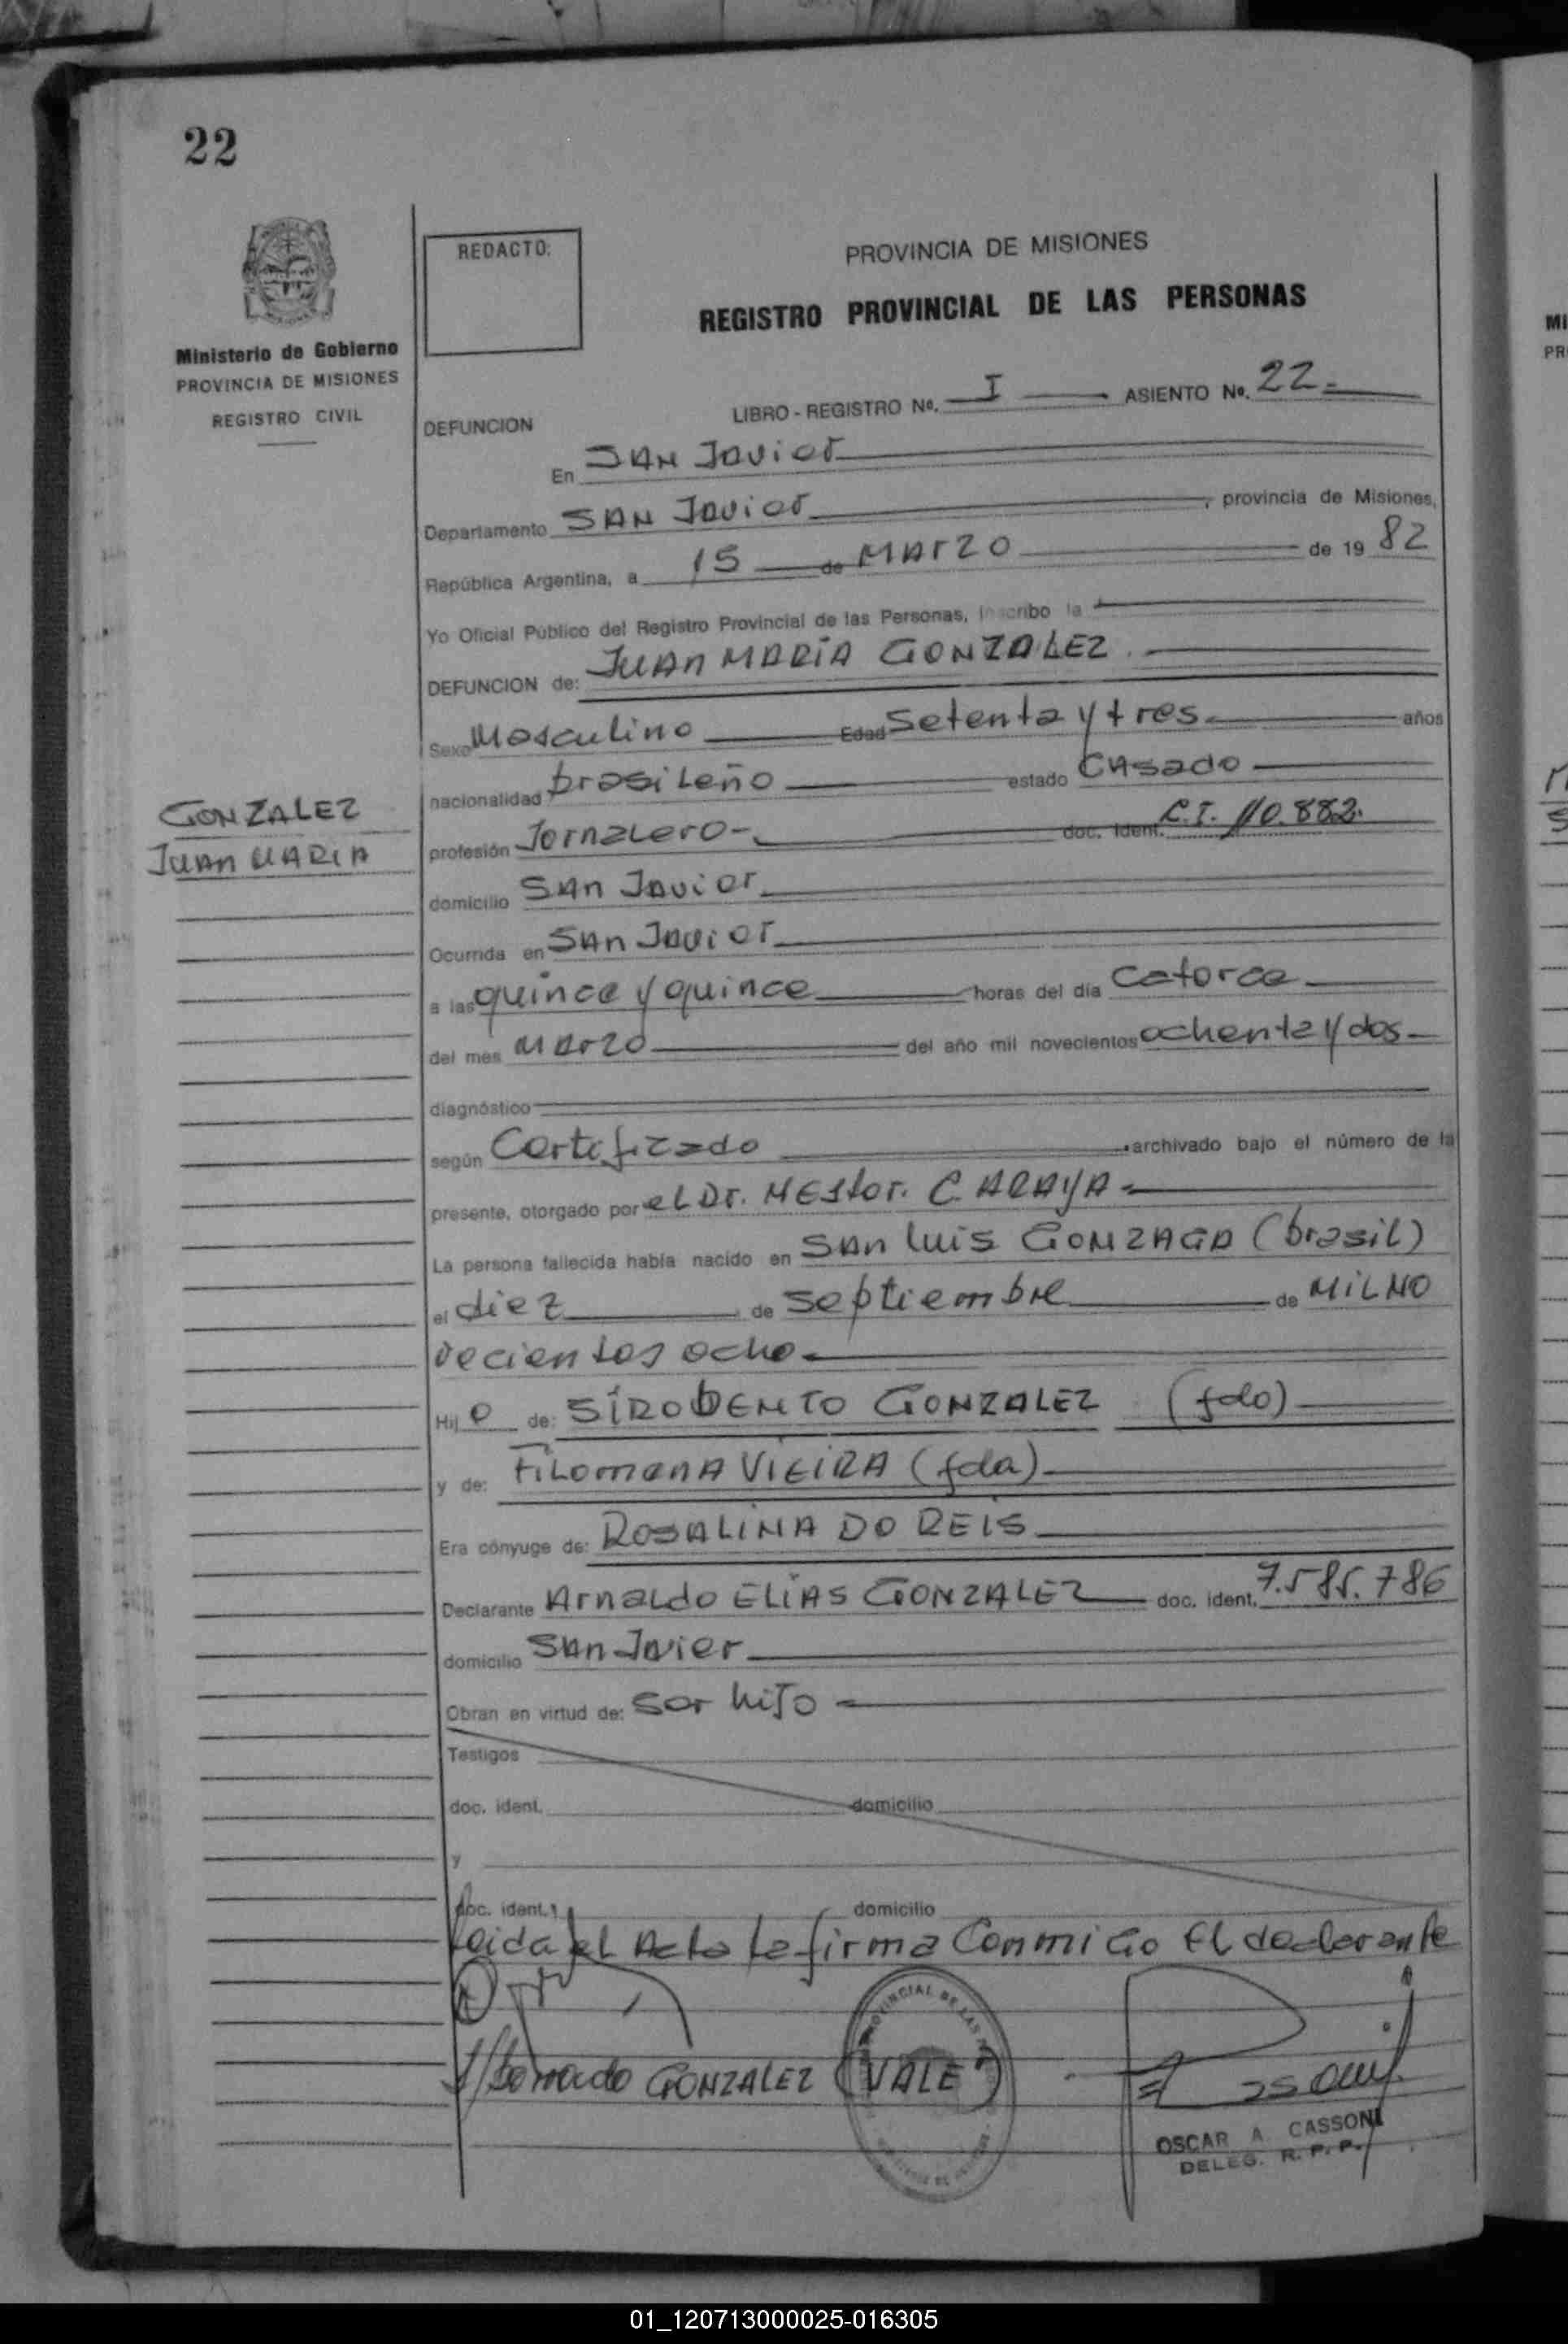 22
Ministerio de Gobierno
PROVINCIA DE MISIONES
REGISTRO CIVIL
GONZALEZ
JUAN MARIA
REDACTO:
PROVINCIA DE MISIONES
REGISTRO PROVINCIAL DE LAS PERSONAS
LIBRO - REGISTRO No. I ASIENTO No. 22.
DEFUNCION
En SAN Javier
Departamento SAN Javier, provincia de Misiones,
República Argentina, a 15 de MArzo de 19 82
Yo Oficial Público del Registro Provincial de las Personas, inscribo la
DEFUNCION de: JUAN MARÍA GONZALEZ.
Sexo Masculino Edad Setenta y tres. años
nacionalidad brasileño estado Casado
profesión Jornalero-. doc. ident. C.I. 110.882.
domicilio SAn Javier
Ocurrida en SAn Javier
a las quince y quince horas del día Catorce
del mes Marzo del año mil novecientos ochenta y dos
diagnóstico
según Certificado archivado bajo el número de la
presente, otorgado por el Dr. NEstor. C. ARAYA
La persona fallecida había nacido en SAn Luis GONZAGA (brasil)
el diez de septiembre de MILNO
vecientos ocho
Hijo de: SÍRO BENTO GONZALEZ (fdo)
y de: FiLomenA VIEIRA (fda)
Era cónyuge de: ROSALINA DO REIS
Declarante Arnaldo ELIAS GONZALEZ doc. ident. 7.585.786
domicilio SAn Javier
Obran en virtud de: ser hijo
Testigos
doc. ident. domicilio
y
doc. ident. domicilio
Leida el Acta la firma ConmiGo El declarante
s/borrado GONZALEZ (VALE)
OSCAR A. CASSONI
DELEG. R. P. P.
01_120713000025-016305